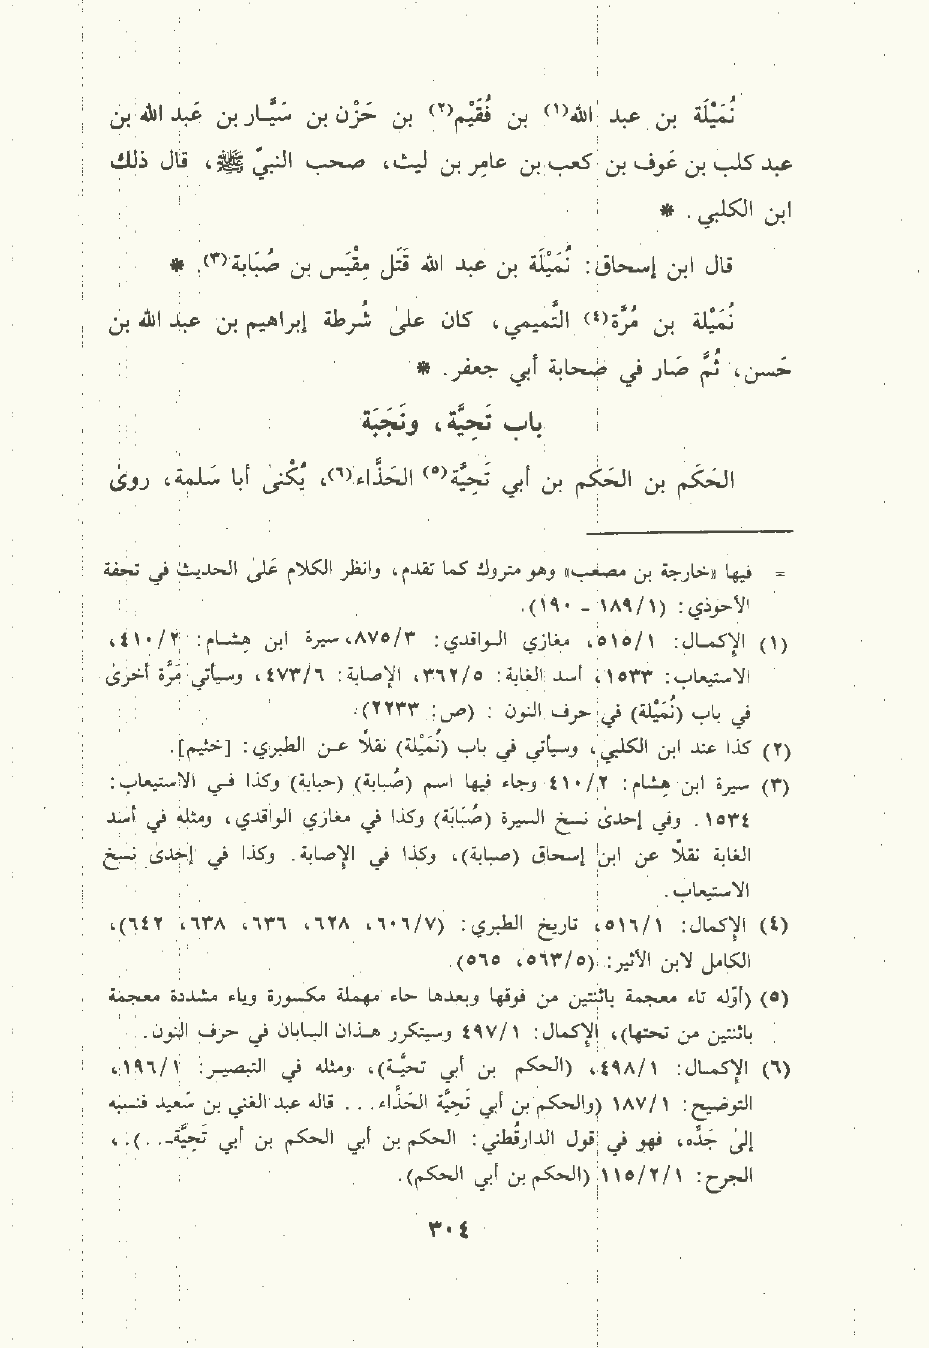 نُمَيْلَة بن عبد الله(١) بن فُقَيْم(٢) بن حَزْن بن سَيَّار بن عَبد الله بن
عبد كلب بن عَوف بن كعب بن عامِر بن ليث، صحب النبيّ ﷺ، قال ذلك
ابن الكلبي. *
قال ابن إسحاق: نُمَيْلَة بن عبد الله قَتَل مِقْيَس بن صُبَابة(٣). *
نُمَيْلَة بن مُرَّة(٤) التَّميمي، كان علىٰ شُرطة إبراهيم بن عبد الله بن
حَسن، ثُمَّ صَار في صَحابة أبي جعفر. *
باب تَحِيَّة، ونَجَبَة
الحَكَم بن الحَكم بن أبي تَحِيَّة(٥) الحَذَّاء(٦)، يُكْنىٰ أبا سَلمة، روىٰ
= فيها «خارجة بن مصعب» وهو متروك كما تقدم، وانظر الكلام عَلىٰ الحديث في تحفة
الأحوذي: (١/ ١٨٩ - ١٩٠).
(١) الإكمال: ١/ ٥١٥، مغازي الواقدي: ٣/ ٨٧٥، سيرة ابن هِشام: ٢/ ٤١٠،
الاستيعاب: ١٥٣٣، أسد الغابة: ٥/ ٣٦٢، الإصابة: ٦/ ٤٧٣، وسيأتي مَرَّة أخرىٰ
في باب (نُمَيْلة) في حرف النون : (ص: ٢٢٣٣).
(٢) كذا عند ابن الكلبي، وسيأتي في باب (نُمَيْلة) نقلاً عن الطبري: [خثيم].
(٣) سيرة ابن هِشام: ٢/ ٤١٠ وجاء فيها اسم (صُبابة) (حبابة) وكذا في الاستيعاب:
١٥٣٤. وفي إحدىٰ نسخ السيرة (صُبَابَة) وكذا في مغازي الواقدي، ومثله في أسد
الغابة نقلاً عن ابن إسحاق (صبابة)، وكذا في الإصابة. وكذا في إحدىٰ نسخ
الاستيعاب.
(٤) الإكمال: ١/ ٥١٦، تاريخ الطبري: (٧/ ٦٠٦، ٦٢٨، ٦٣٦، ٦٣٨، ٦٤٢)،
الكامل لابن الأثير: (٥/ ٥٦٣، ٥٦٥).
(٥) (أوّله تاء معجمة باثنتين من فوقها وبعدها حاء مهملة مكسورة وياء مشددة معجمة
باثنتين من تحتها)، الإكمال: ١/ ٤٩٧ وسيتكرر هذان البابان في حرف النون.
(٦) الإكمال: ١/ ٤٩٨، (الحكم بن أبي تحيَّة)، ومثله في التبصير: ١/ ١٩٦،
التوضيح: ١/ ١٨٧ (والحكم بن أبي تَحِيَّة الحَذَّاء... قاله عبد الغني بن سَعيد فنسبه
إلىٰ جَدِّه، فهو في قول الدارقُطني: الحكم بن أبي الحكم بن أبي تَحِيَّة-...).،
الجرح: ١/ ٢/ ١١٥ (الحكم بن أبي الحكم).
٣٠٤